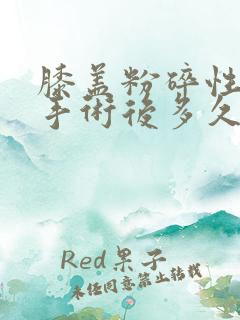 膝盖粉碎性
手術後多久
Red果子
未经同意禁止转载